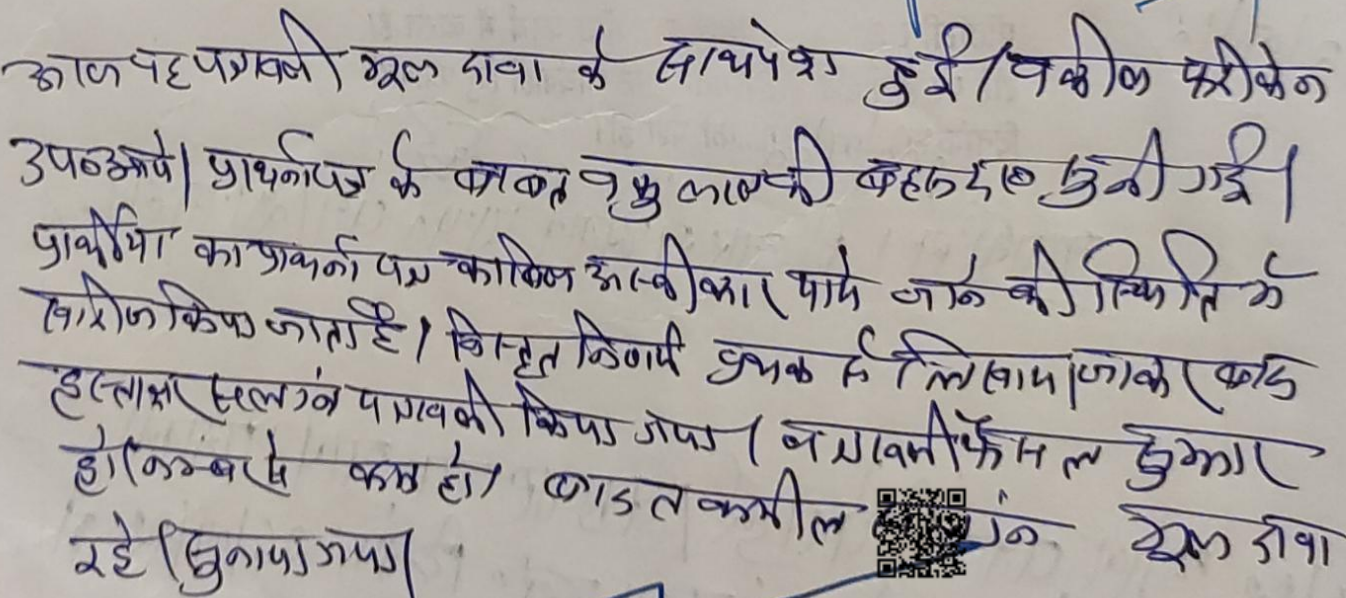 आज यह पत्रावली मूल दावा के साथ पेश हुई। वकील फरीकेन
उप० आये। प्रार्थनापत्र के बाबत वकुलाय की बहस सुनी गई।
प्रार्थीया का प्रार्थना पत्र काबिल अस्वीकार पाये जाने की स्थिति में
खारीज किया जाता है। विस्तृत निर्णय पृथक से लिखाया जाकर बाद
हस्ताक्षर सलग्न पत्रावली किया गया। पत्रावली फैसल शुमार
हो। नम्बर से कम हो। बाद तकमील मूल दावा
रहे। सुनाया गया।